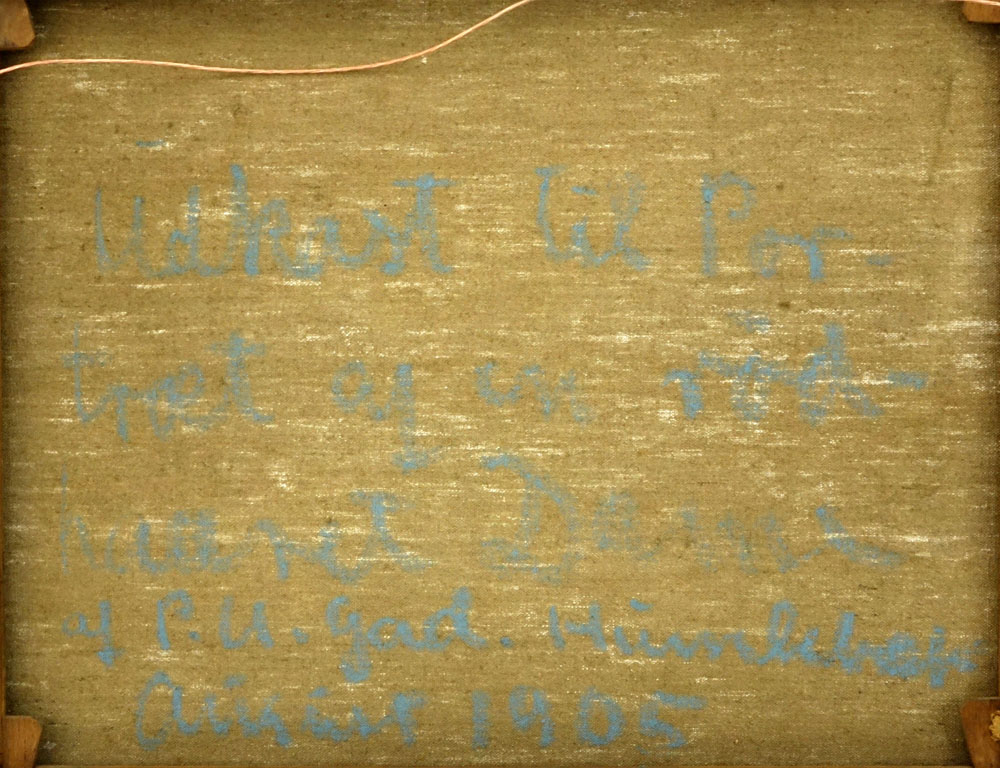 Udkast til Por-
træt af en rød-
haaret Dame
af P. U. Gad. Humlebæk
August 1905